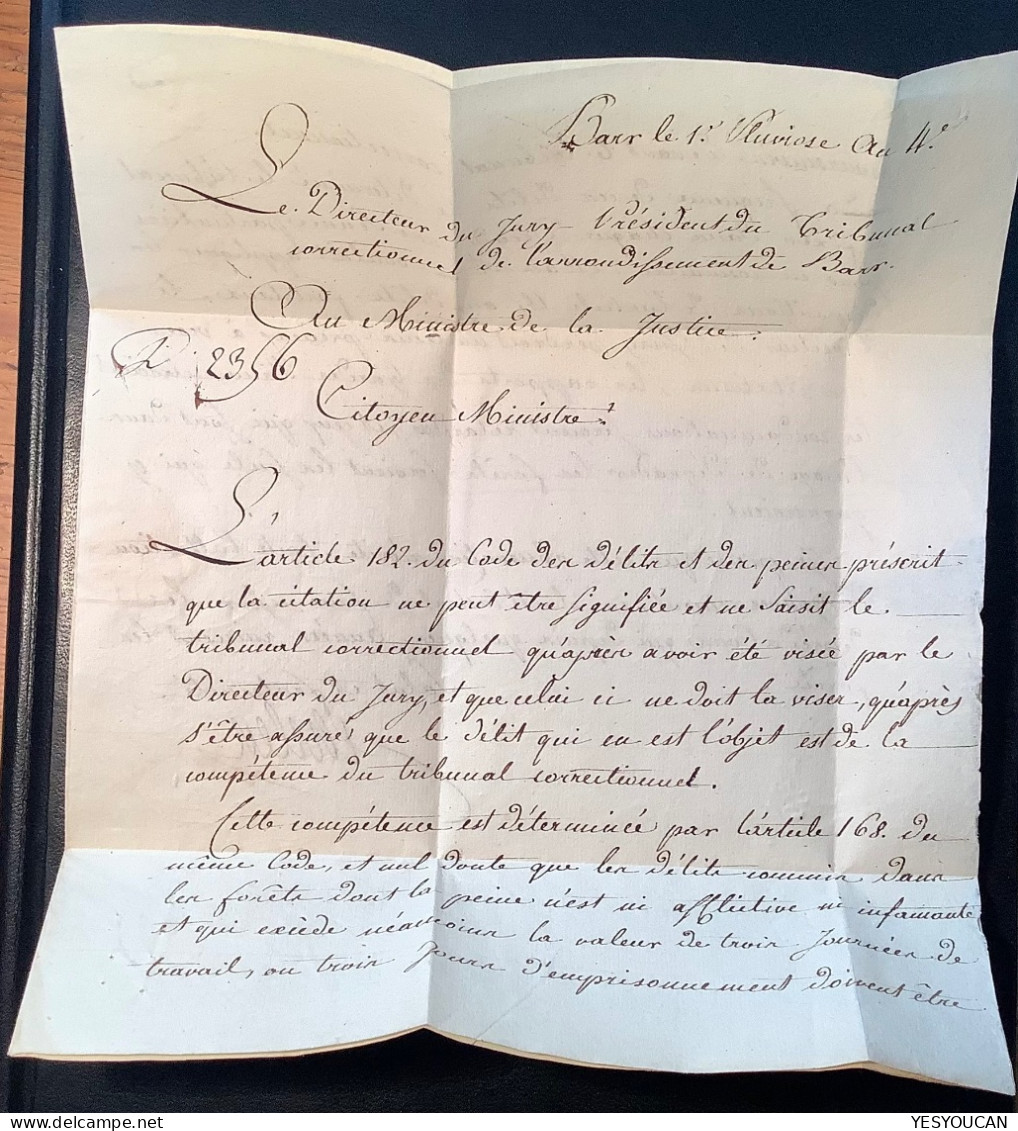 Barr le 1.r Pluviose au 4.e
Le Directeur du Jury Président du Tribunal
correctionnel de l'arrondissement de Barr.
Au Ministre de la Justice.
2356
Citoyen Ministre
L'article 182. du Code des délits et des peines préscrit
que la citation ne peut être signifiée et ne Saisit le
tribunal correctionnel qu'après avoir été visée par le
Directeur du Jury, et que celui ci ne doit la viser, qu'après
s'être assuré que le délit qui en est l'objet est de la
compétence du tribunal correctionnel.
Cette compétence est déterminée par l'article 168. du
même Code, et nul doute que les délits commis dans
les forêts dont la peine n'est ni afflictive ni infamante
et qui exède néanmoins la valeur de trois Journées de
travail, ou trois Jours d'emprisonnement doivent être
YESYOUCAN